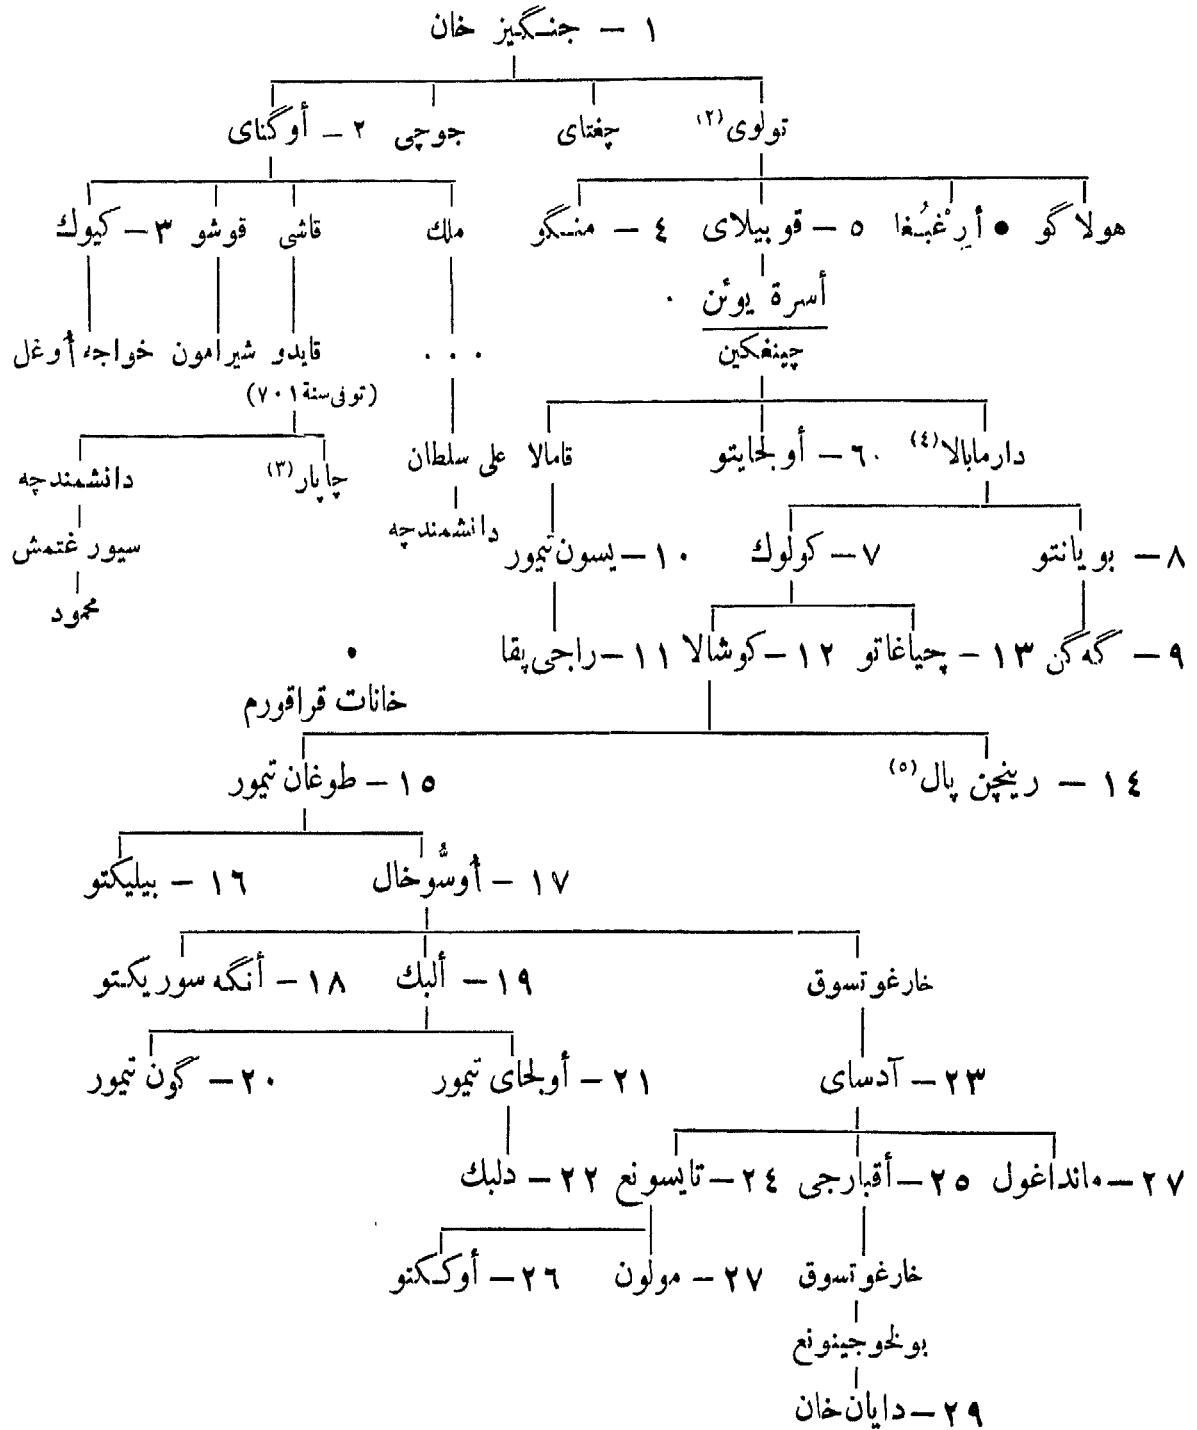 ١ – جنگيز خان
تولوى (٢) چغتاى جوچى ٢ – أوگتاى
هولاگو • أرِغْبُغا ٥ – قوبيلاى ٤ – منگو ملك قاشى قوشو ٣ – كيوك
أسرة يوئن
چينغكين
. . . قايدو شيرامون خواجه أوغل
(توفى سنة ٧٠١)
دارمابالا (٤) ٦ – أولجايتو قامالا على سلطان چاپار (٣) دانشمندچه
٨ – بويانتو ٧ – كولوك ١٠ – يسون تيمور دانشمندچه سيورغتمش
محمود
٩ – گه گن ١٣ – چياغاتو ١٢ – كوشالا ١١ – راجى پقا
خانات قراقورم
١٤ – رينچن پال (٥) ١٥ – طوغان تيمور
١٧ – أوسُّوخال ١٦ – بيليكتو
خارغوتسوق ١٩ – ألبك ١٨ – أنگه سوريكتو
٢٣ – آدساى ٢١ – أولجاى تيمور ٢٠ – گون تيمور
٢٧ – مانداغول ٢٥ – أقبارجى ٢٤ – تايسونع ٢٢ – دلبك
خارغوتسوق ٢٧ – مولون ٢٦ – أوككتو
بولخوجينونع
٢٩ – دايان خان